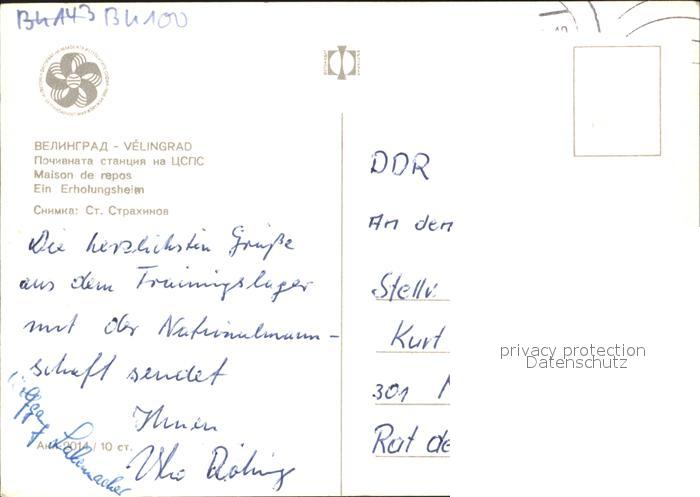 BU143 BU100
ВЕЛИНГРАД - VÉLINGRAD
Почивната станция на ЦСПС
Maison de repos
Ein Erholungsheim
Снимка: Ст. Страхинов
Die herzlichsten Grüße
aus dem Trainingslager
mit der Nationalmann-
schaft sendet
Ihnen
Акл 2014 / 10 ст.
DDR
An den
Stellv.
Kurt
301
Rat de
privacy protection
Datenschutz